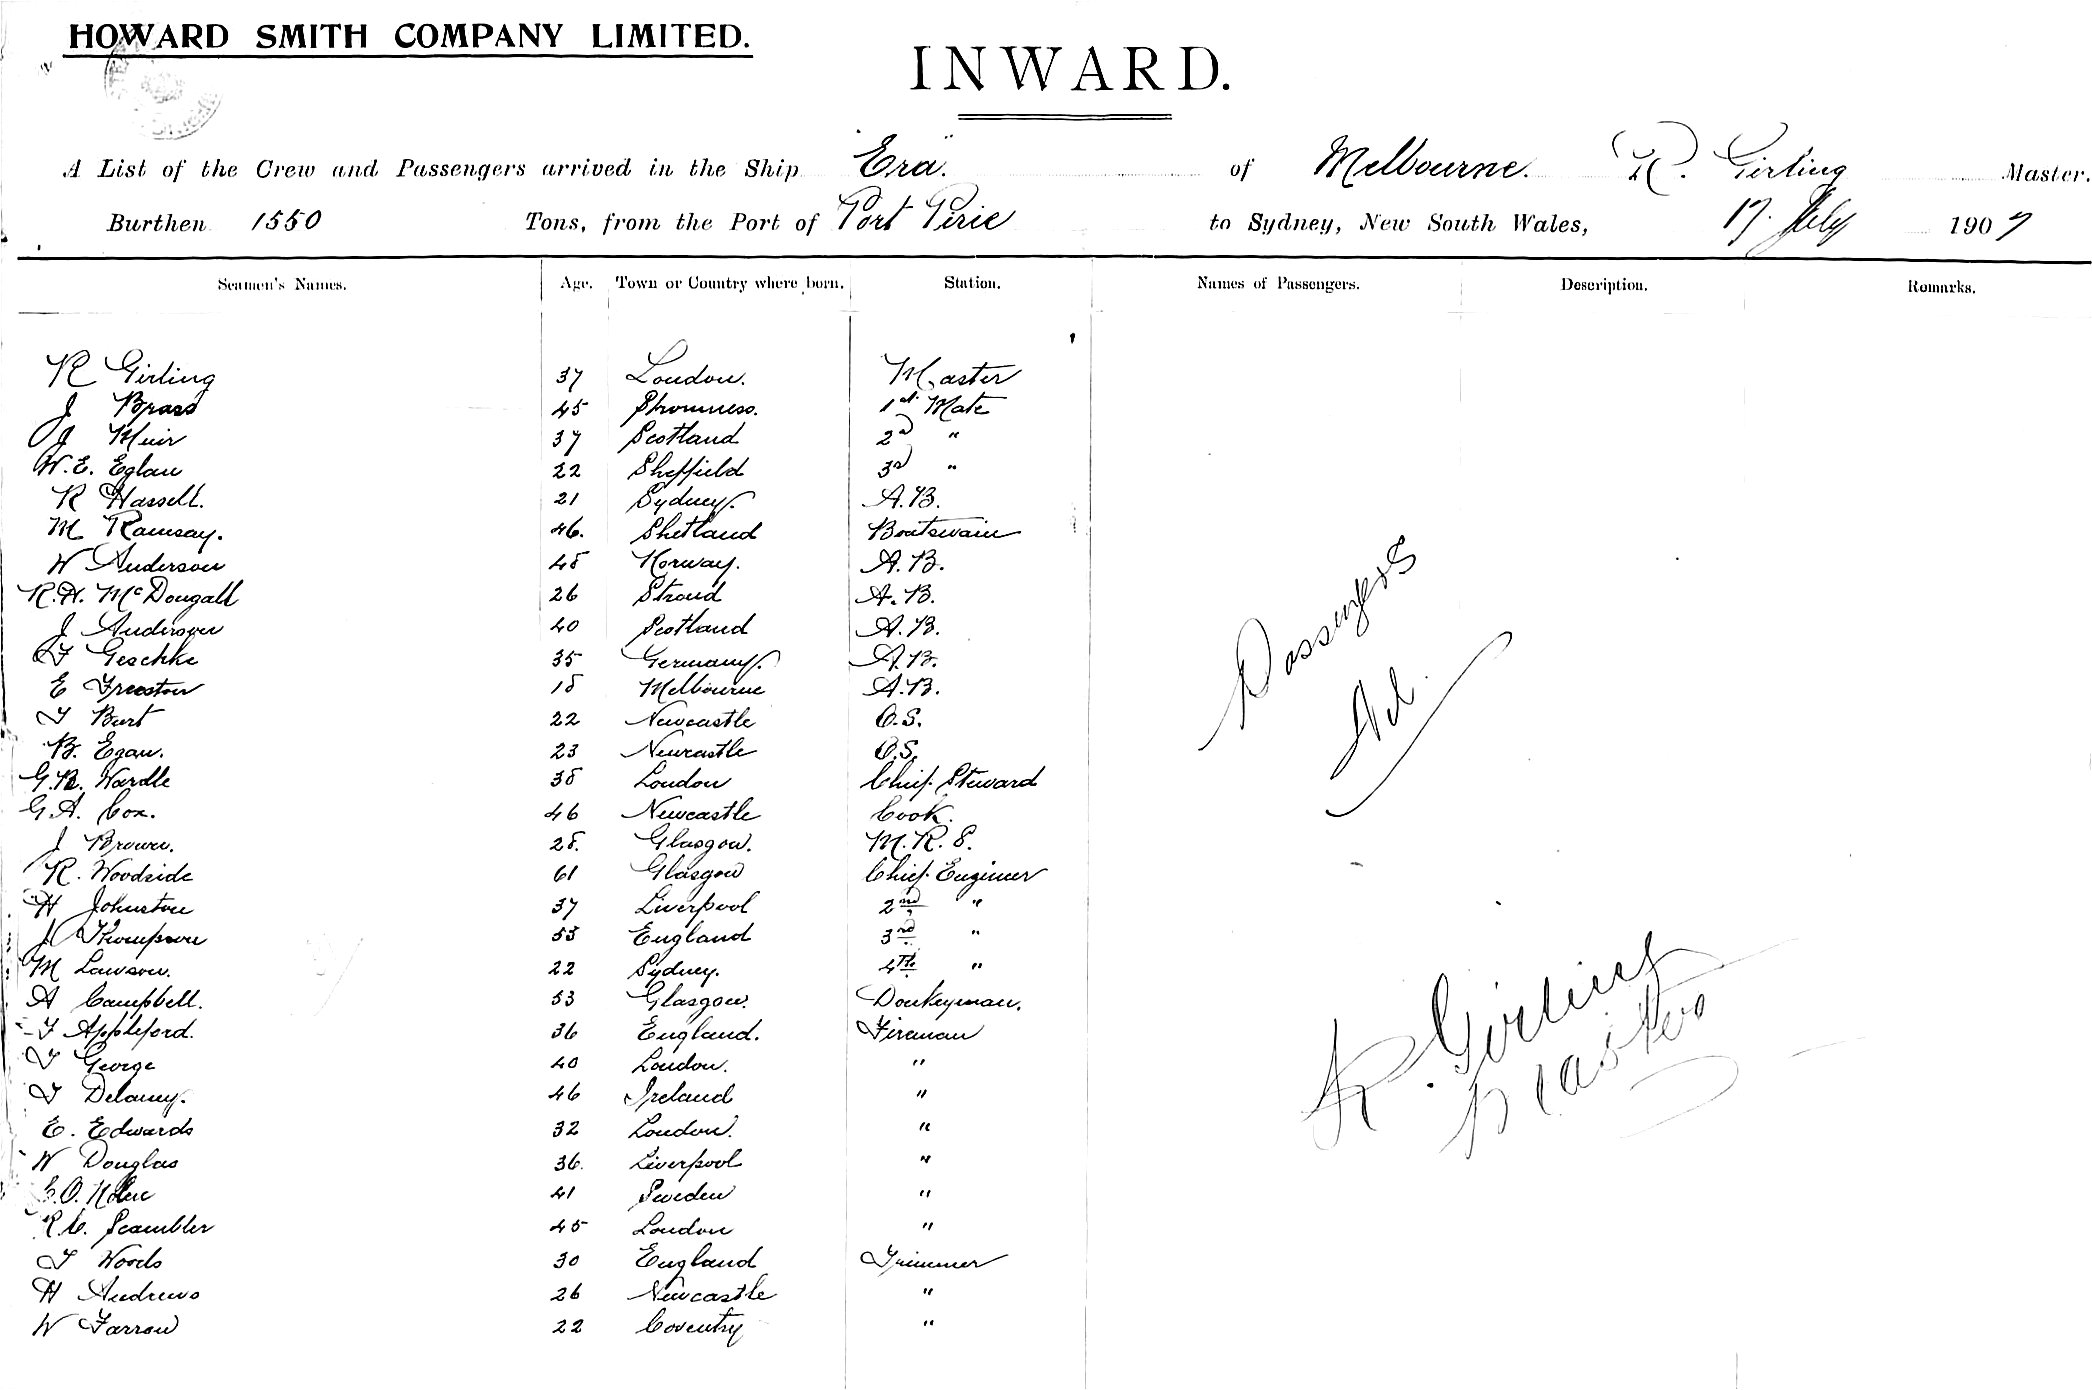 HOWARD SMITH COMPANY LIMITED.
INWARD.
A List of the Crew and Passengers arrived in the Ship "Era." of Melbourne. R. Girling Master.
Burthen 1550 Tons, from the Port of Port Pirie to Sydney, New South Wales, 17. July 1907
Seamen's Names. Age. Town or Country where born. Station. Names of Passengers. Description. Remarks.
R Girling 37 London. Master
J Brass 45 Stromness. 1st Mate
J Muir 37 Scotland 2d "
W. E. Eglau 22 Sheffield 3d "
R Hassell. 21 Sydney. A.B.
M Ramsay. 46. Shetland Boatswain
W Anderson 48 Norway. A.B.
R. H. McDougall 26 Stroud A.B.
J Anderson 40 Scotland A.B.
F Geschke 35 Germany. A.B.
E Freestow 18 Melbourne A.B.
T Burt 22 Newcastle O.S.
B. Egan. 23 Newcastle O.S.
G.R. Wardle 38 London Chief Steward
G.A. Cox. 46 Newcastle Cook.
J Brown. 28. Glasgow. M.R.S.
R. Woodside 61 Glasgow Chief Engineer
H Johnston 37 Liverpool 2nd "
J Thompson 53 England 3rd "
M Lawson. 22 Sydney. 4th "
A Campbell. 53 Glasgow. Donkeyman.
T Appleford. 36 England. Fireman
T George 40 London. "
T Delaney. 46 Ireland "
E. Edwards 32 London. "
W Douglas 36. Liverpool "
C.O. 41 Sweden "
R.C. Scambler 45 London "
T Woods 30 England Trimmer
H Andrews 26 Newcastle "
W Farrow 22 Coventry "
Passengers
Nil.
R. Girling
Master